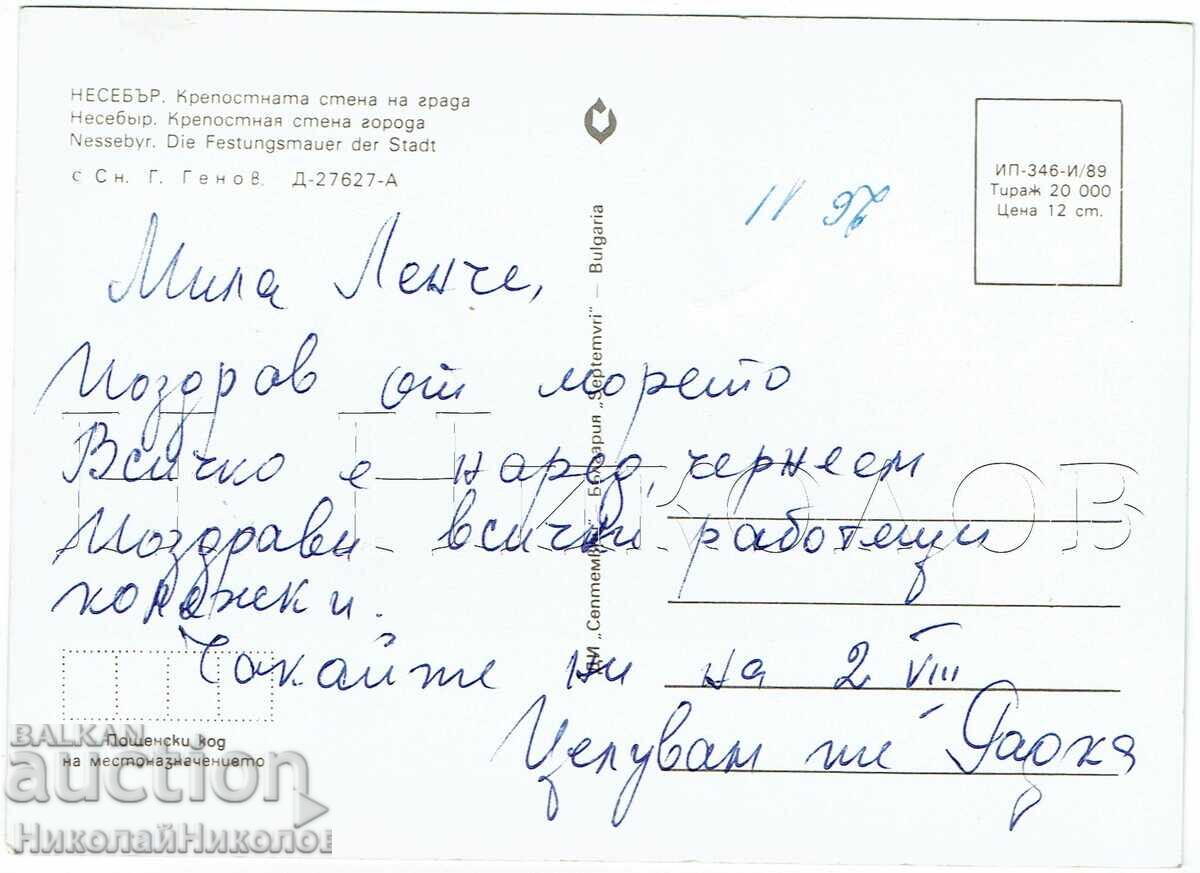 НЕСЕБЪР. Крепостната стена на града
Несебыр. Крепостная стена города
Nessebyr. Die Festungsmauer der Stadt
с Сн. Г. Генов. Д-27627-А
ИП-346-И/89
Тираж 20 000
Цена 12 ст.
ДИ „Септември" България „Septemvri" — Bulgaria
Мила Ленче,
Поздрав от морето
Всичко е наред, чернеем
Поздрави всички работещи
колежки.
Чакайте ни на 2 VIII
Целувам те Радка
Пощенски код
на местоназначението
BALKAN
auction
НиколайНиколов
Николов